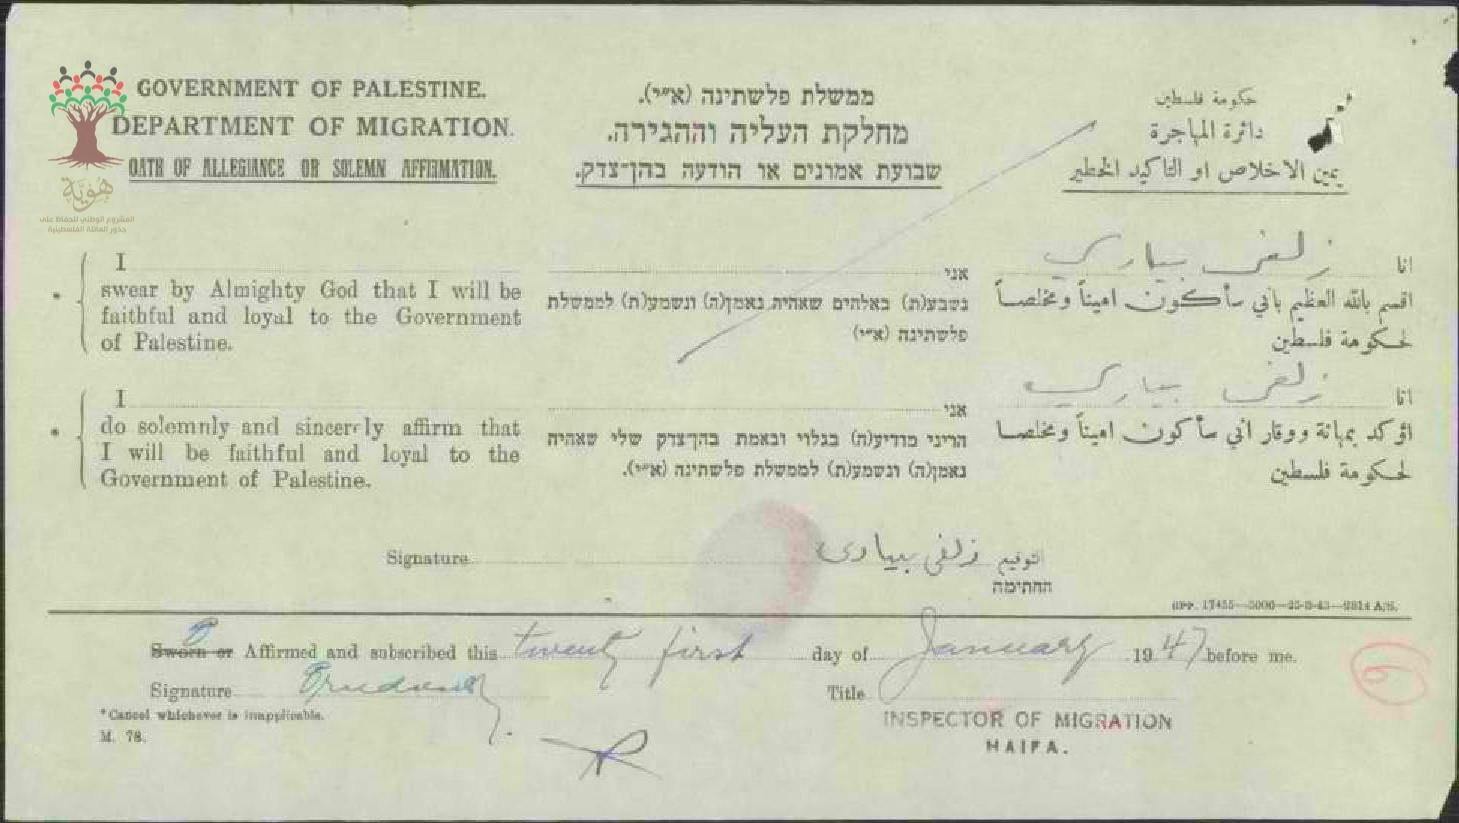 GOVERNMENT OF PALESTINE.
DEPARTMENT OF MIGRATION.
OATH OF ALLEGIANCE OR SOLEMN AFFIRMATION.
ממשלת פלשתינה (א״י).
מחלקת העליה וההגירה.
שבועת אמונים או הודעה בהן־צדק.
حكومة فلسطين
دائرة المهاجرة
يمين الاخلاص او التاكيد الخطير
هُويَّة
المشروع الوطني للحفاظ على
جذور العائلة الفلسطينية
I
swear by Almighty God that I will be
faithful and loyal to the Government
of Palestine.
אני
נשבע(ת) באלהים שאהיה נאמן(ה) ונשמע(ת) לממשלת
פלשתינה (א״י)
انا زلفى بيباري
اقسم بالله العظيم باني سأكون اميناً ومخلصاً
لحكومة فلسطين
I
do solemnly and sincerely affirm that
I will be faithful and loyal to the
Government of Palestine.
אני
הריני מודיע(ה) בגלוי ובאמת בהן־צדק שלי שאהיה
נאמן(ה) ונשמע(ת) לממשלת פלשתינה (א״י).
انا زلفى بيباري
اؤكد بمهانة ووقار اني سأكون اميناً ومخلصا
لحكومة فلسطين
Signature زلفى بيبارى التوقيع
החתימה
GPP. 17455—5000—25-3-43—8814 A/S.
Sworn or Affirmed and subscribed this twenty first day of January 1947 before me.
Signature Title
INSPECTOR OF MIGRATION
HAIFA.
*Cancel whichever is inapplicable.
M. 78.